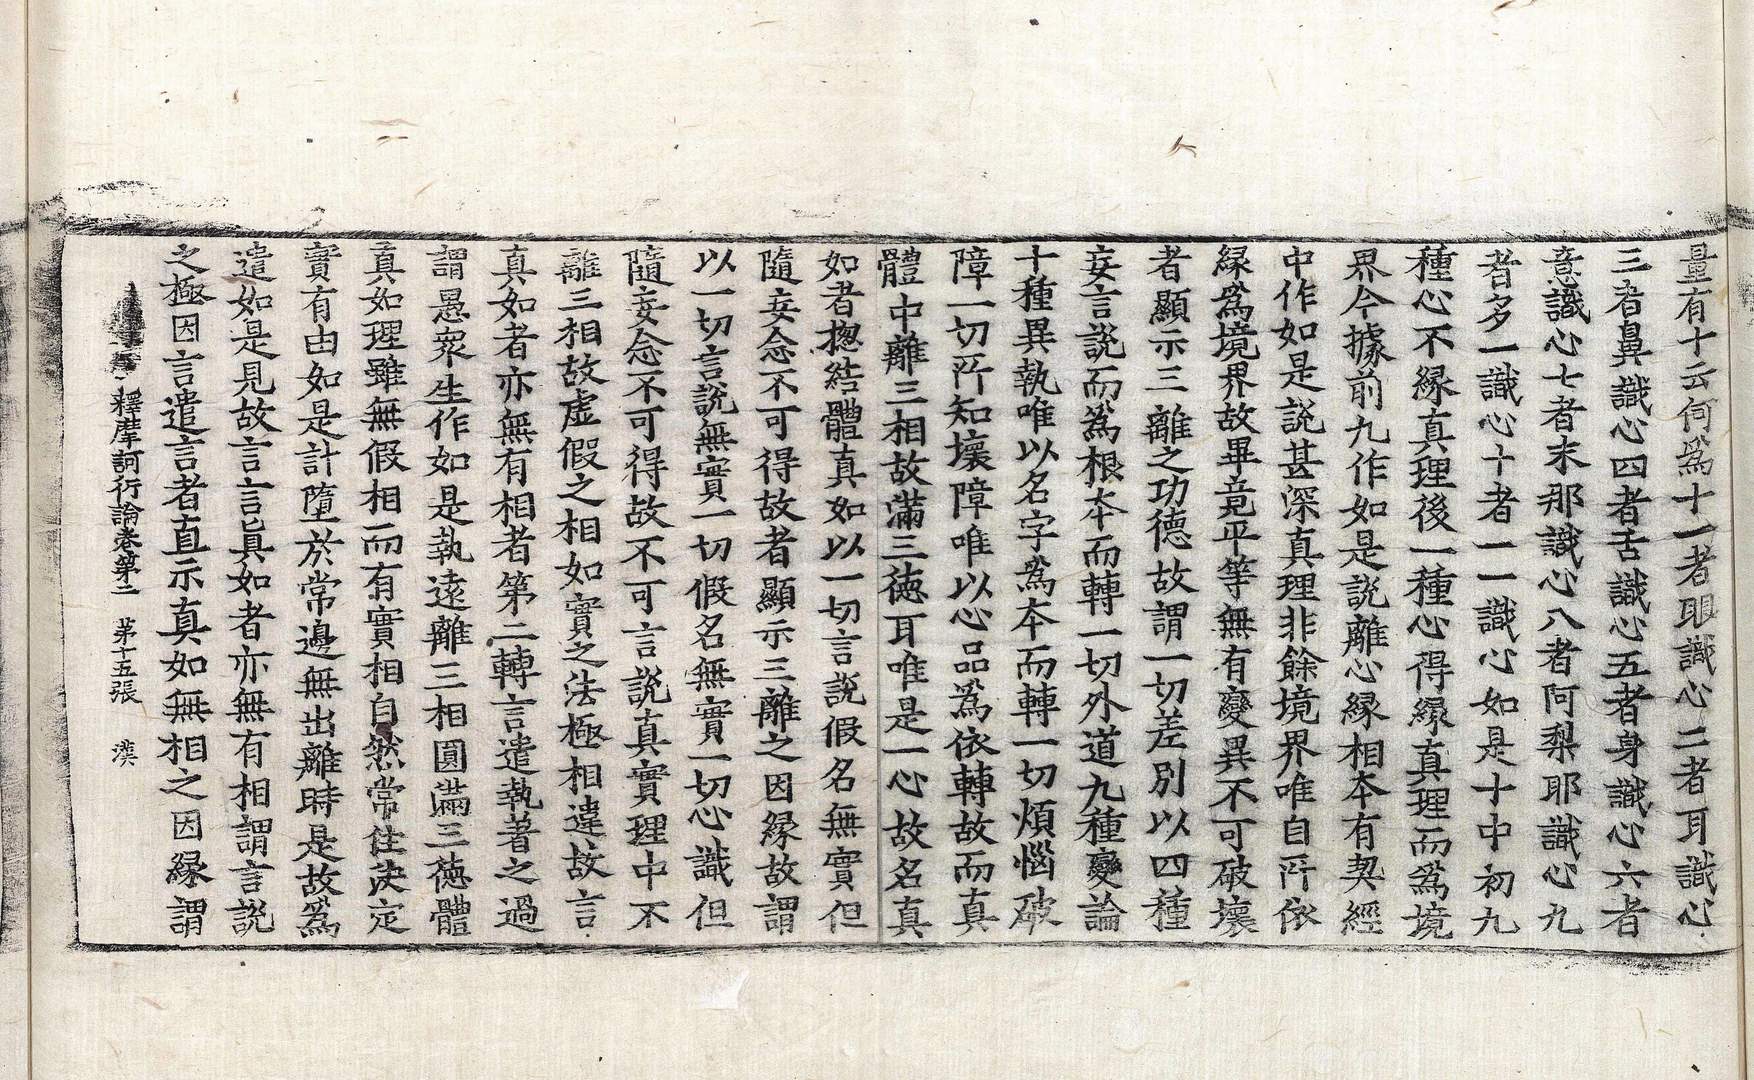 量有十云何爲十一者眼識心二者耳識心
三者鼻識心四者舌識心五者身識心六者
意識心七者末那識心八者阿梨耶識心九
者多一識心十者一一識心如是十中初九
種心不縁真理後一種心得縁真理而爲境
界今據前九作如是說離心縁相夲有契經
中作如是說甚深真理非餘境界唯自所依
縁爲境界故畢竟平等無有變異不可破壞
者顯示三離之功德故謂一切差別以四種
妄言說而爲根夲而轉一切外道九種變論
十種異執唯以名字爲夲而轉一切煩惱破
障一切所知壞障唯以心品爲依轉故而真
體中離三相故滿三德耳唯是一心故名真
如者揔結體真如以一切言說假名無實但
隨妄念不可得故者顯示三離之因縁故謂
以一切言說無實一切假名無實一切心識但
隨妄念不可得故不可言說真實理中不
離三相故虛假之相如實之法極相違故言
真如者亦無有相者第二轉言遣執著之過
謂愚衆生作如是執遠離三相圓滿三德體
真如理雖無假相而有實相自然常住決定
實有由如是計墮於常邊無出離時是故爲
遣如是見故言言真如者亦無有相謂言說
之極因言遣言者直示真如無相之因縁謂
釋摩訶衍論卷第二 第十五張 漢